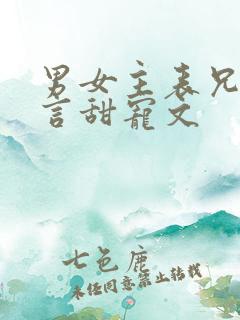 男女主表兄
言甜宠文
七色鹿
未经同意禁止转载